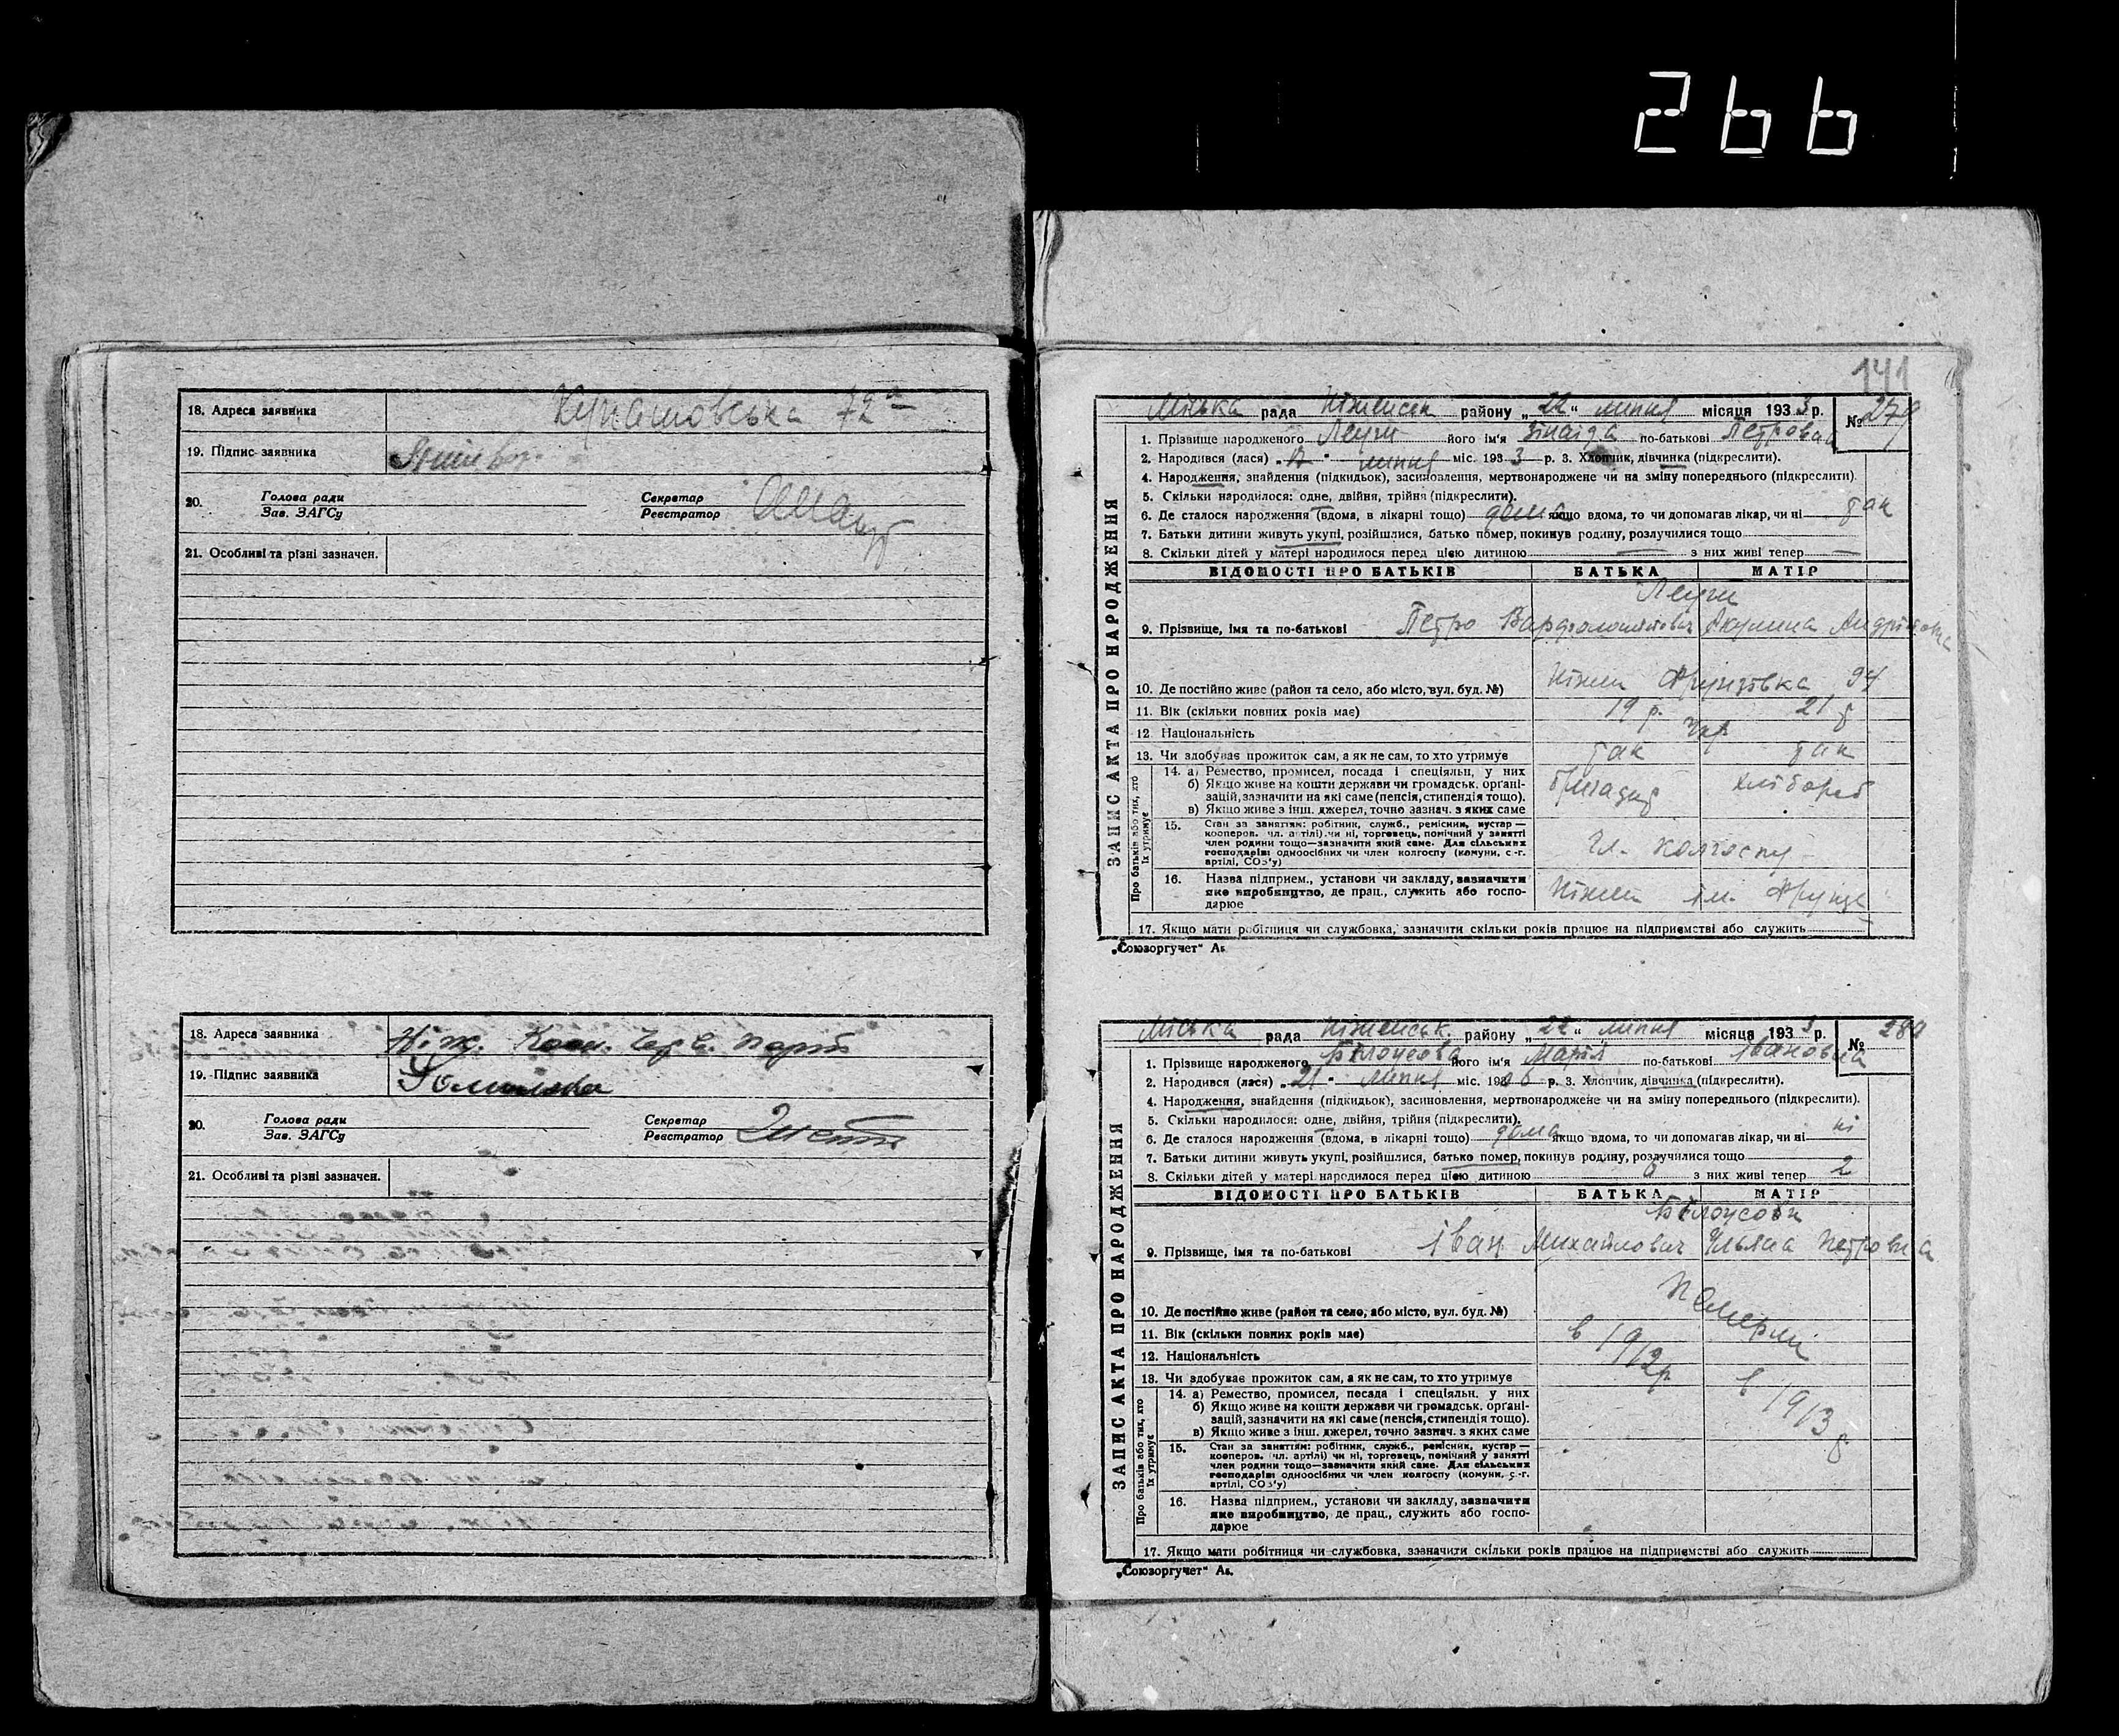 266
18. Адреса заявника Кунашовська 72а
19. Підпис заявника
20. Голова ради Зав. ЗАГСу Секретар Реєстратор
21. Особливі та різні зазначен.
18. Адреса заявника Ніж. Черв.
19. Підпис заявника
20. Голова ради Зав. ЗАГСу Секретар Реєстратор
21. Особливі та різні зазначен.
141
ЗАПИС АКТА ПРО НАРОДЖЕННЯ
Міська рада Ніженськ району „22“ липня місяця 1933 р. № 279
1. Прізвище народженого його ім'я Зінаїда по-батькові Петровна
2. Народився (лася) „ “ липня міс. 1933 р. 3. Хлопчик, дівчинка (підкреслити).
4. Народження, знайдення (підкидьок), засиновлення, мертвонароджене чи на зміну попереднього (підкреслити).
5. Скільки народилося: одне, двійня, трійня (підкреслити).
6. Де сталося народження (вдома, в лікарні тощо) дома якщо вдома, то чи допомагав лікар, чи ні так
7. Батьки дитини живуть укупі, розійшлися, батько помер, покинув родину, розлучилися тощо
8. Скільки дітей у матері народилося перед цією дитиною — з них живі тепер —
ВІДОМОСТІ ПРО БАТЬКІВ БАТЬКА МАТІР
9. Прізвище, імя та по-батькові Петро Варфоломійович Акулина Андріївна
10. Де постійно живе (район та село, або місто, вул. буд. №) Ніжин Фрунзівка 94
11. Вік (скільки повних років має) 19 р. 21 р
12 Національність Укр
13. Чи здобуває прожиток сам, а як не сам, то хто утримує так так
Про батьків або тих, хто їх утримує
14. а) Ремество, промисел, посада і спеціяльн. у них бригадир хлібороб
б) Якщо живе на кошти держави чи громадськ. орґані-
зацій, зазначити на які саме (пенсія, стипендія тощо).
в) Якщо живе з інш. джерел, точно зазнач. з яких саме
15. Стан за заняттям: робітник, служб., ремісник, кустар —
кооперов. чл. артілі) чи ні, торговець, помічний у занятті
член родини тощо—зазначити який саме. Для сільських
господарів: одноосібних чи член колгоспу (комуни, с.-г.
артілі, СОЗ'у) Чл. колгоспу
16. Назва підприєм., установи чи закладу, зазначити
яке виробництво, де прац., служить або госпо-
дарює Ніжин ім. Фрунзе
17. Якщо мати робітниця чи службовка, зазначити скільки років працює на підприємстві або служить
„Союзоргучет“ А5
ЗАПИС АКТА ПРО НАРОДЖЕННЯ
Міська рада Ніженськ. району „22“ липня місяця 1933 р. № 280
1. Прізвище народженого Білоусова його ім'я Марія по-батькові Івановна
2. Народився (лася) „21“ липня міс. р. 3. Хлопчик, дівчинка (підкреслити).
4. Народження, знайдення (підкидьок), засиновлення, мертвонароджене чи на зміну попереднього (підкреслити).
5. Скільки народилося: одне, двійня, трійня (підкреслити).
6. Де сталося народження (вдома, в лікарні тощо) дома якщо вдома, то чи допомагав лікар, чи ні ні
7. Батьки дитини живуть укупі, розійшлися, батько помер, покинув родину, розлучилися тощо
8. Скільки дітей у матері народилося перед цією дитиною з них живі тепер 2
ВІДОМОСТІ ПРО БАТЬКІВ БАТЬКА МАТІР
Білоусови
9. Прізвище, імя та по-батькові Іван Михайлович Ульяна Петровна
Померли
10. Де постійно живе (район та село, або місто, вул. буд. №)
11. Вік (скільки повних років має) в 1912 р
12. Національність
13. Чи здобуває прожиток сам, а як не сам, то хто утримує в 1913 р
Про батьків або тих, хто їх утримує
14. а) Ремество, промисел, посада і спеціяльн. у них
б) Якщо живе на кошти держави чи громадськ. орґані-
зацій, зазначити на які саме (пенсія, стипендія тощо).
в) Якщо живе з інш. джерел, точно зазнач. з яких саме
15. Стан за заняттям: робітник, служб., ремісник, кустар —
кооперов. чл. артілі) чи ні, торговець, помічний у занятті
член родини тощо—зазначити який саме. Для сільських
господарів: одноосібних чи член колгоспу (комуни, с.-г.
артілі, СОЗ'у)
16. Назва підприєм., установи чи закладу, зазначити
яке виробництво, де прац., служить або госпо-
дарює
17. Якщо мати робітниця чи службовка, зазначити скільки років працює на підприємстві або служить
„Союзоргучет“ А5.